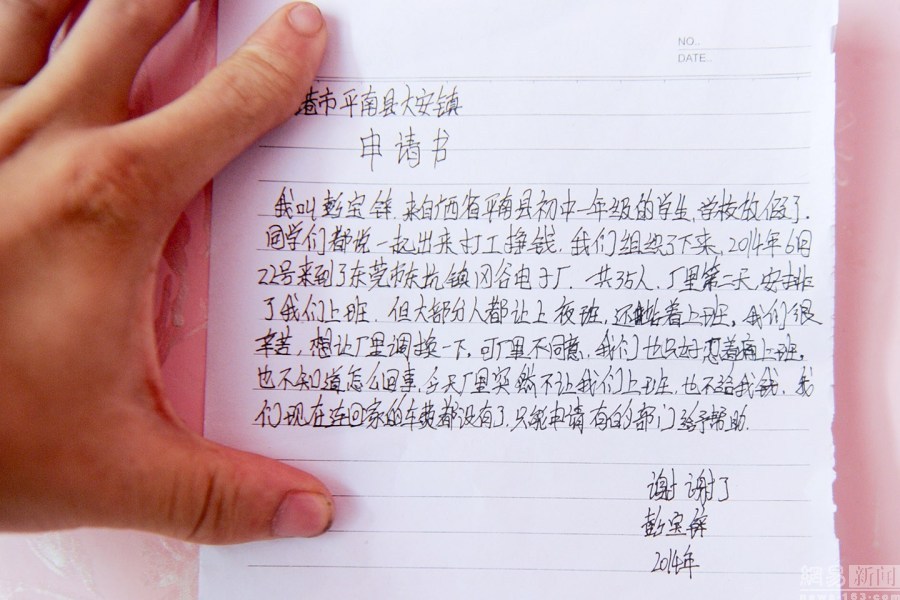 NO.
DATE.
港市平南县大安镇
申请书
我叫彭宝锋,来自广西省平南县初中一年级的学生,学校放假了.
同学们都说一起出来打工挣钱.我们组织了下来,2014年6月
22号来到了东莞市东坑镇冈谷电子厂.一共35人.厂里第二天,安排
了我们上班.但大部分人都让上夜班,还站着上班。我们很
辛苦,想让厂里调换一下,可厂里不同意,我们也只好忍着痛上班,
也不知道怎么回事,今天厂里突然不让我们上班,也不给我钱,我
们现在连回家的车费都没有了,只能申请有的部门给予帮助.
谢谢了
彭宝锋
2014年
網易 新闻
news.163.com